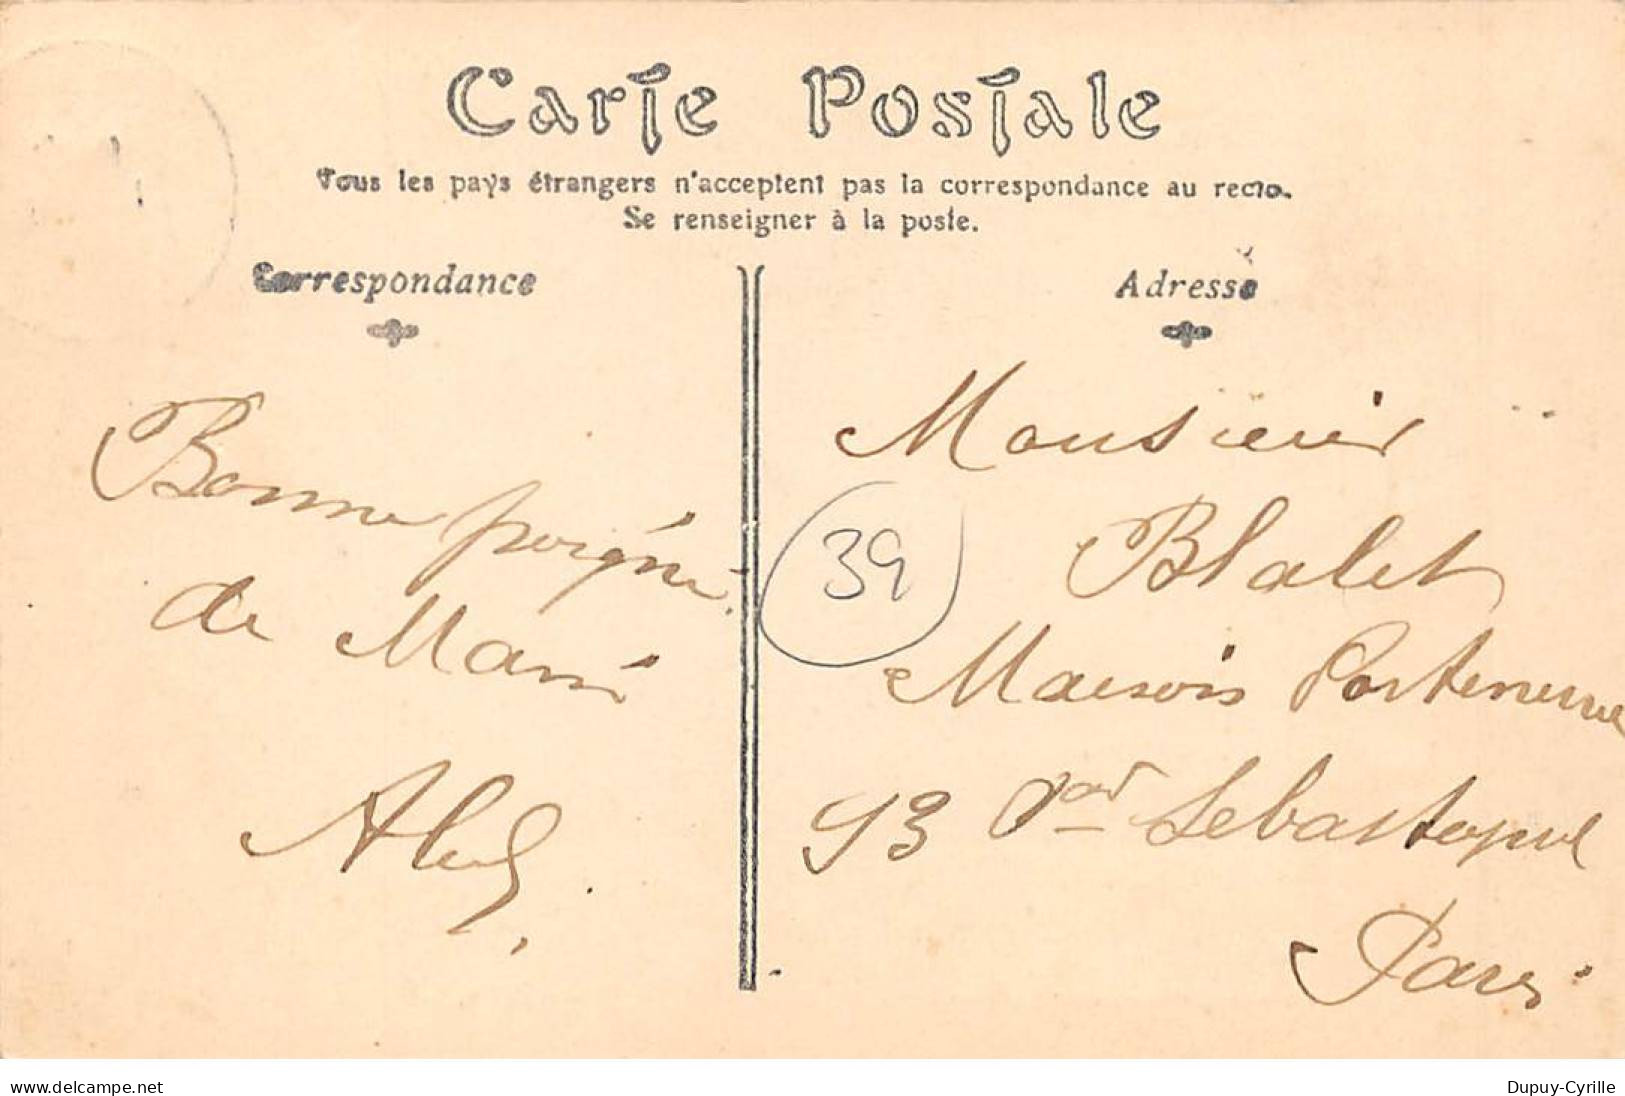 Carte Postale
Tous les pays étrangers n'acceptent pas la correspondance au recto.
Se renseigner à la poste.
Correspondance
Adresse
Bonne poigné
de Main
Monsieur
Blalet
39
Maison Porteneuve
93 Bard Sebastopol
Paris
www.delcampe.net
Dupuy-Cyrille